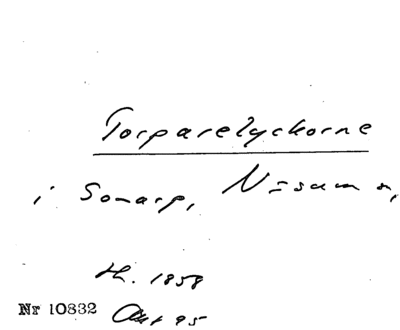 Torparelyckorne
i Sonarp, N=sum n,
th. 1858
Nr 10832 Akt 95